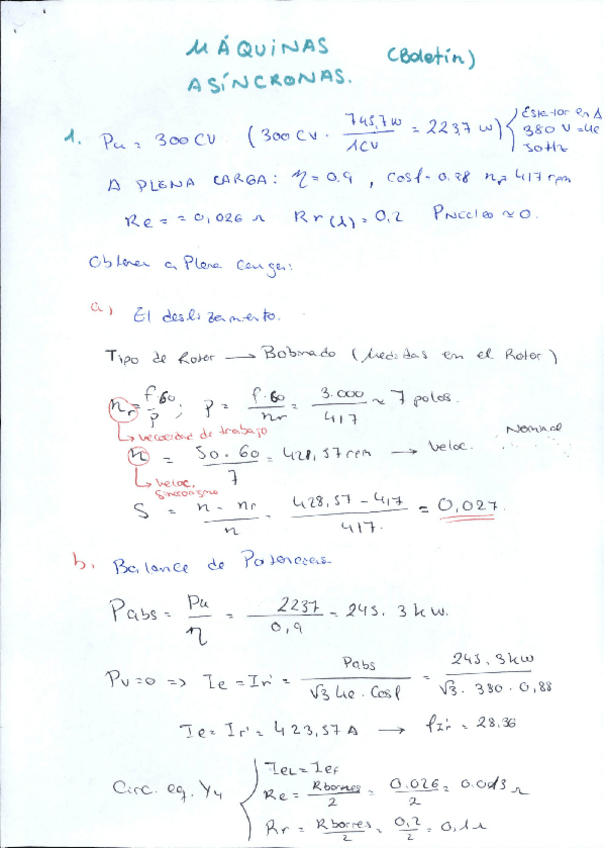 MÁQUINAS (Boletín)
ASÍNCRONAS.
1. Pu = 300 CV (300 CV · 745,7 W / 1 CV = 2237 W) { Estator en Δ
380 V = Ue
50 Hz
A PLENA CARGA: η = 0.9, Cosφ = 0.88 nr = 417 rpm
Re = = 0,026 Ω Rr(λ) = 0,2 PNúcleo ≈ 0.
Obtener a Plena Carga:
a) El deslizamiento.
Tipo de Rotor → Bobinado (Medidas en el Rotor)
nr = f·60 / P ; P = f·60 / nr = 3.000 / 417 ≈ 7 polos.
↳ velocidad de trabajo
n = 50·60 / 7 = 428,57 rpm → Veloc. Nominal
↳ Veloc. Sincronismo
S = n - nr / n = 428,57 - 417 / 417. = 0,027.
b. Balance de Potencias
Pabs = Pu / η = 2237 / 0,9 = 245.3 kW.
Pv=0 => Ie = Ir' = Pabs / √3 Ue·Cosφ = 245,3kW / √3·380·0,88
Ie = Ir' = 423,57 A → φIr' = 28.36
Circ. eq. Yλ { IeL = Ief
Re = Rbornes / 2 = 0.026 / 2 = 0.013 Ω
Rr = Rbornes / 2 = 0,2 / 2 = 0,1 Ω